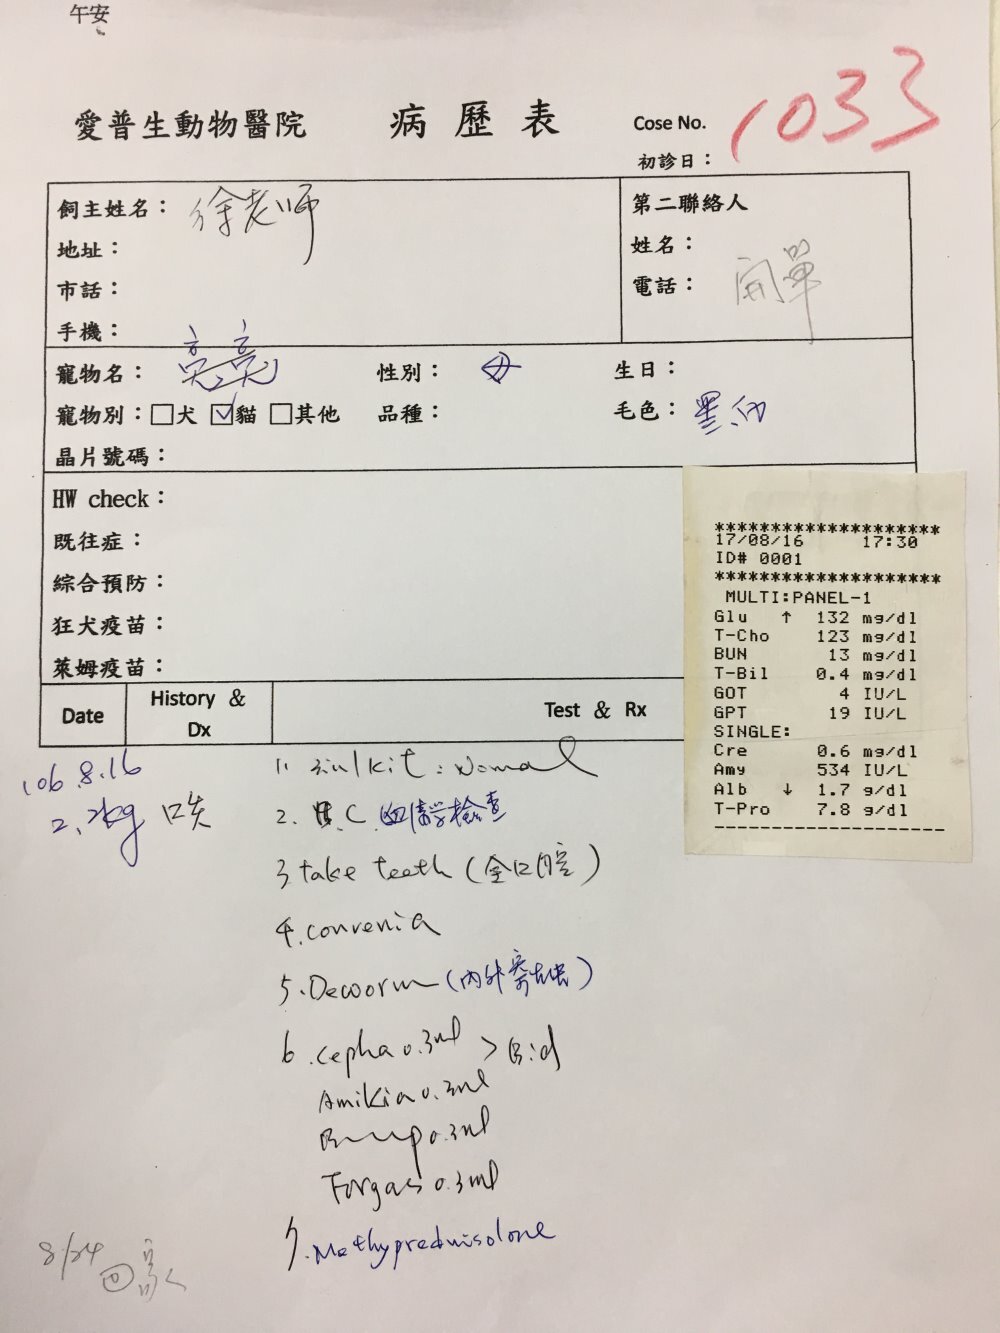 午安
愛普生動物醫院 病歷表 Cose No. 1033
初診日：
飼主姓名： 徐老師
地址：
市話：
手機：
第二聯絡人
姓名：
電話：
開單
寵物名： 亮亮 性別： 母 生日：
寵物別：□犬 ☑貓 □其他 品種： 毛色：
晶片號碼：
HW check：
既往症：
綜合預防：
狂犬疫苗：
萊姆疫苗：
Date History & Dx Test & Rx
********************
17/08/16 17:30
ID# 0001
********************
MULTI:PANEL-1
Glu ↑ 132 mg/dl
T-Cho 123 mg/dl
BUN 13 mg/dl
T-Bil 0.4 mg/dl
GOT 4 IU/L
GPT 19 IU/L
SINGLE:
Cre 0.6 mg/dl
Amy 534 IU/L
Alb ↓ 1.7 g/dl
T-Pro 7.8 g/dl
--------------------
106.8.16
2.2kg
1. kit: Nomal
2. B.C. 血清學檢查
3 take teeth (全口腔)
4. convenia
5. Deworm (內外寄生蟲)
6. Cepha 0.3ml > Bid
Amikia 0.3ml
0.3ml
Forgas 0.3ml
7. Methyprednisolone
8/24 回家